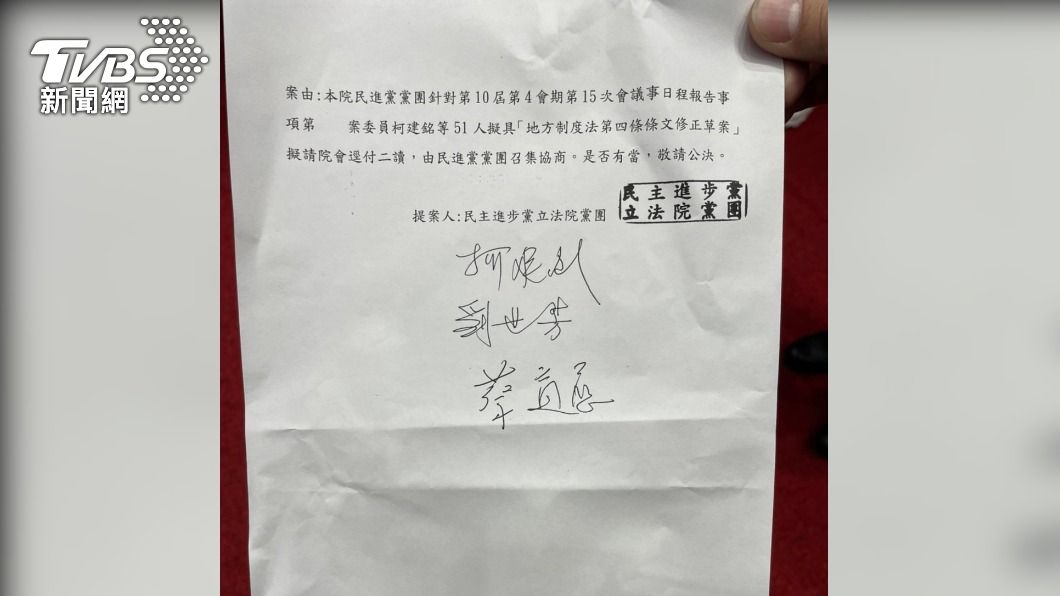 TVBS
新聞網
案由:本院民進黨黨團針對第10屆第4會期第15次會議事日程報告事
項第　　案委員柯建銘等51人擬具「地方制度法第四條條文修正草案」
擬請院會逕付二讀，由民進黨黨團召集協商。是否有當，敬請公決。
民主進步黨
立法院黨團
提案人:民主進步黨立法院黨團
柯建銘
劉世芳